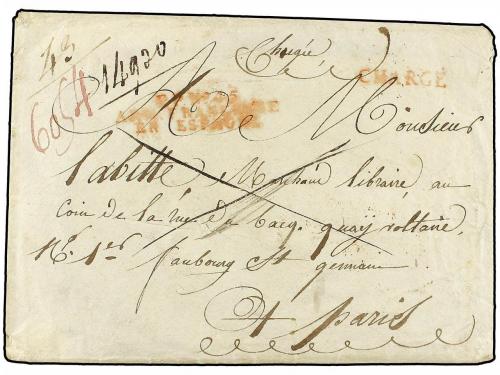 43
14920
6954
Chargée
CHARGÉ
EN ESPAGNE
A Monsieur
Labitte Marchand libraire, au
coin de la rue du bacq. quay voltaire,
N.º 1.er faubourg St germain
A paris